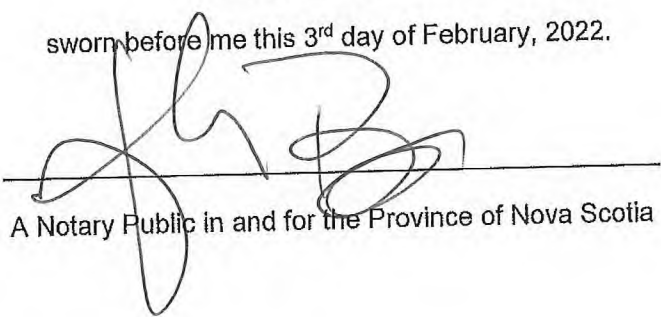 sworn before me this 3rd day of February, 2022.
A Notary Public in and for the Province of Nova Scotia